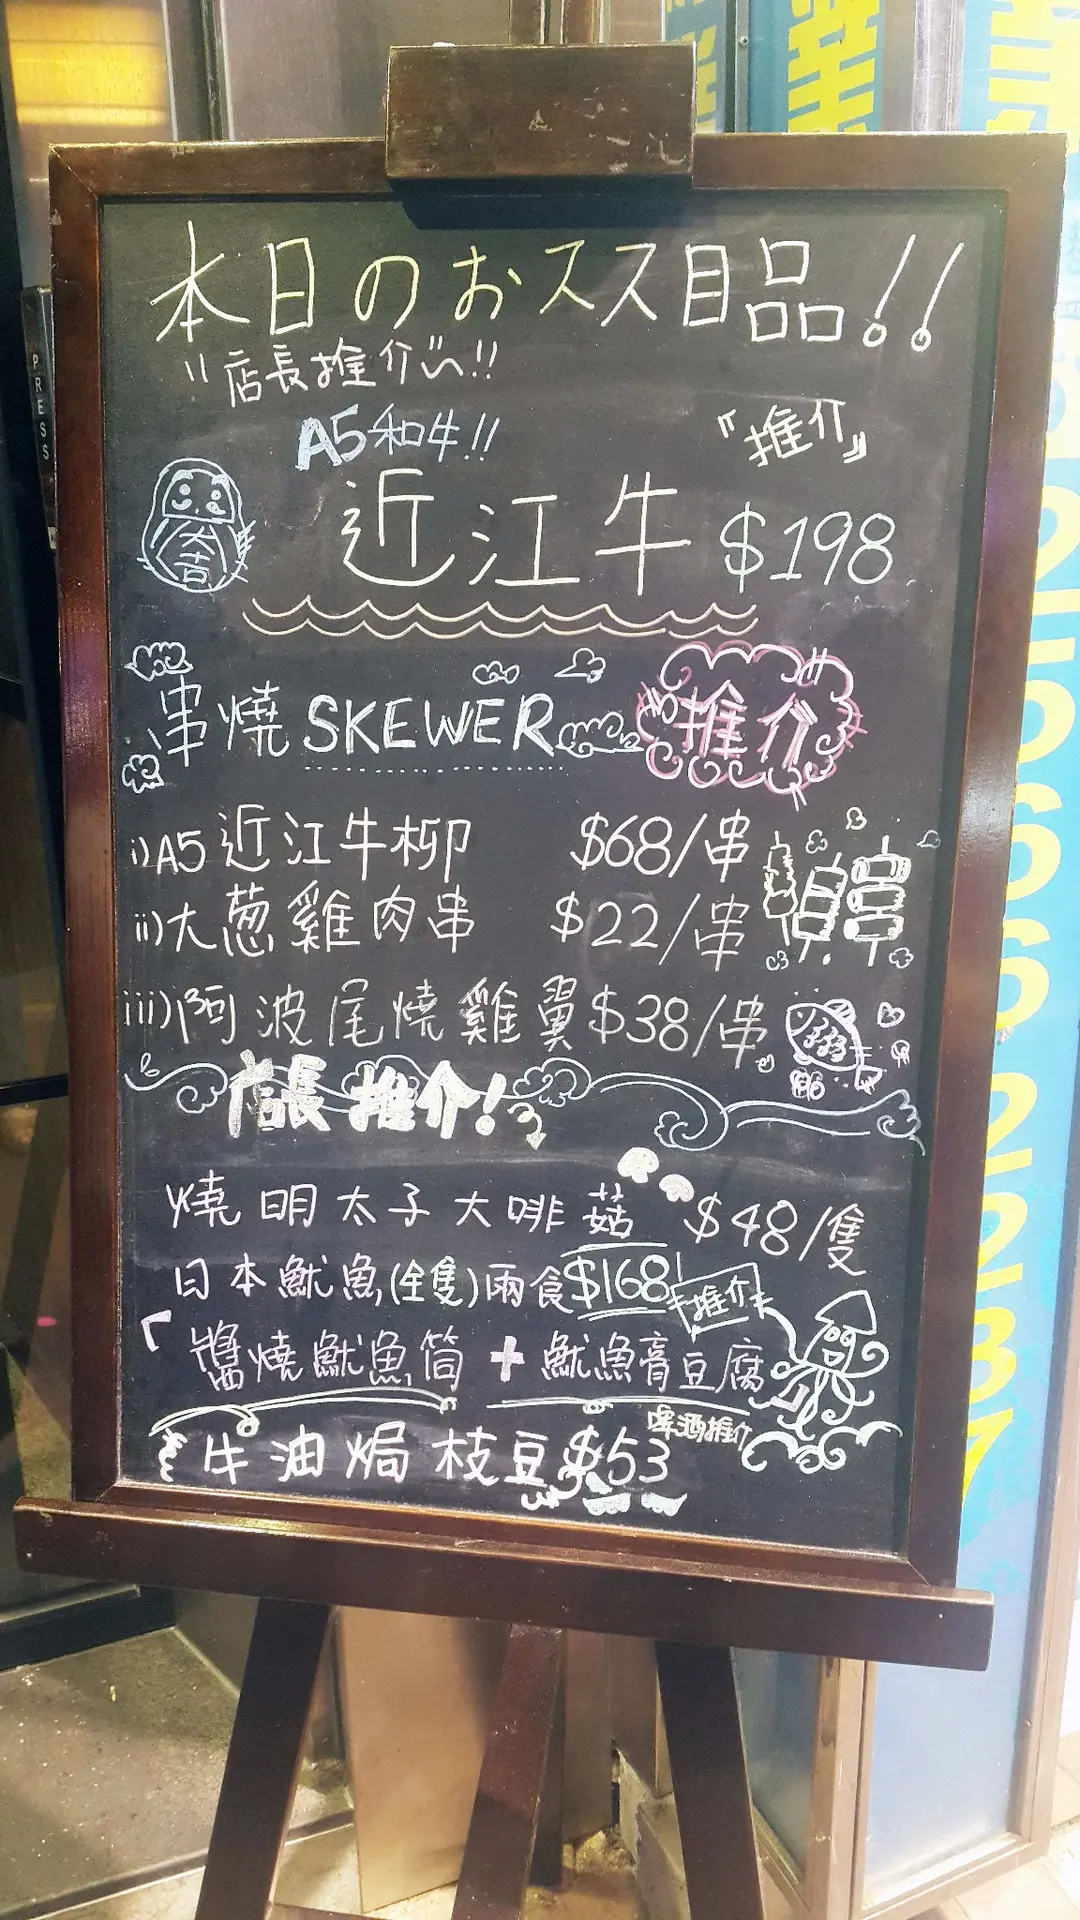 本日のおススメ品!!
"店長推介"!!
A5和牛!!
『推介』
近江牛 $198
大吉
串燒 SKEWER 推介
i) A5近江牛柳 $68/串
ii) 大葱雞肉串 $22/串
iii) 阿波尾燒雞翼 $38/串
店長推介!
燒明太子大啡菇 $48/隻
日本魷魚(全隻)兩食 $168
推介
「醬燒魷魚筒 + 魷魚膏豆腐
啤酒推介
牛油焗枝豆 $53
PRESS
2566 2237